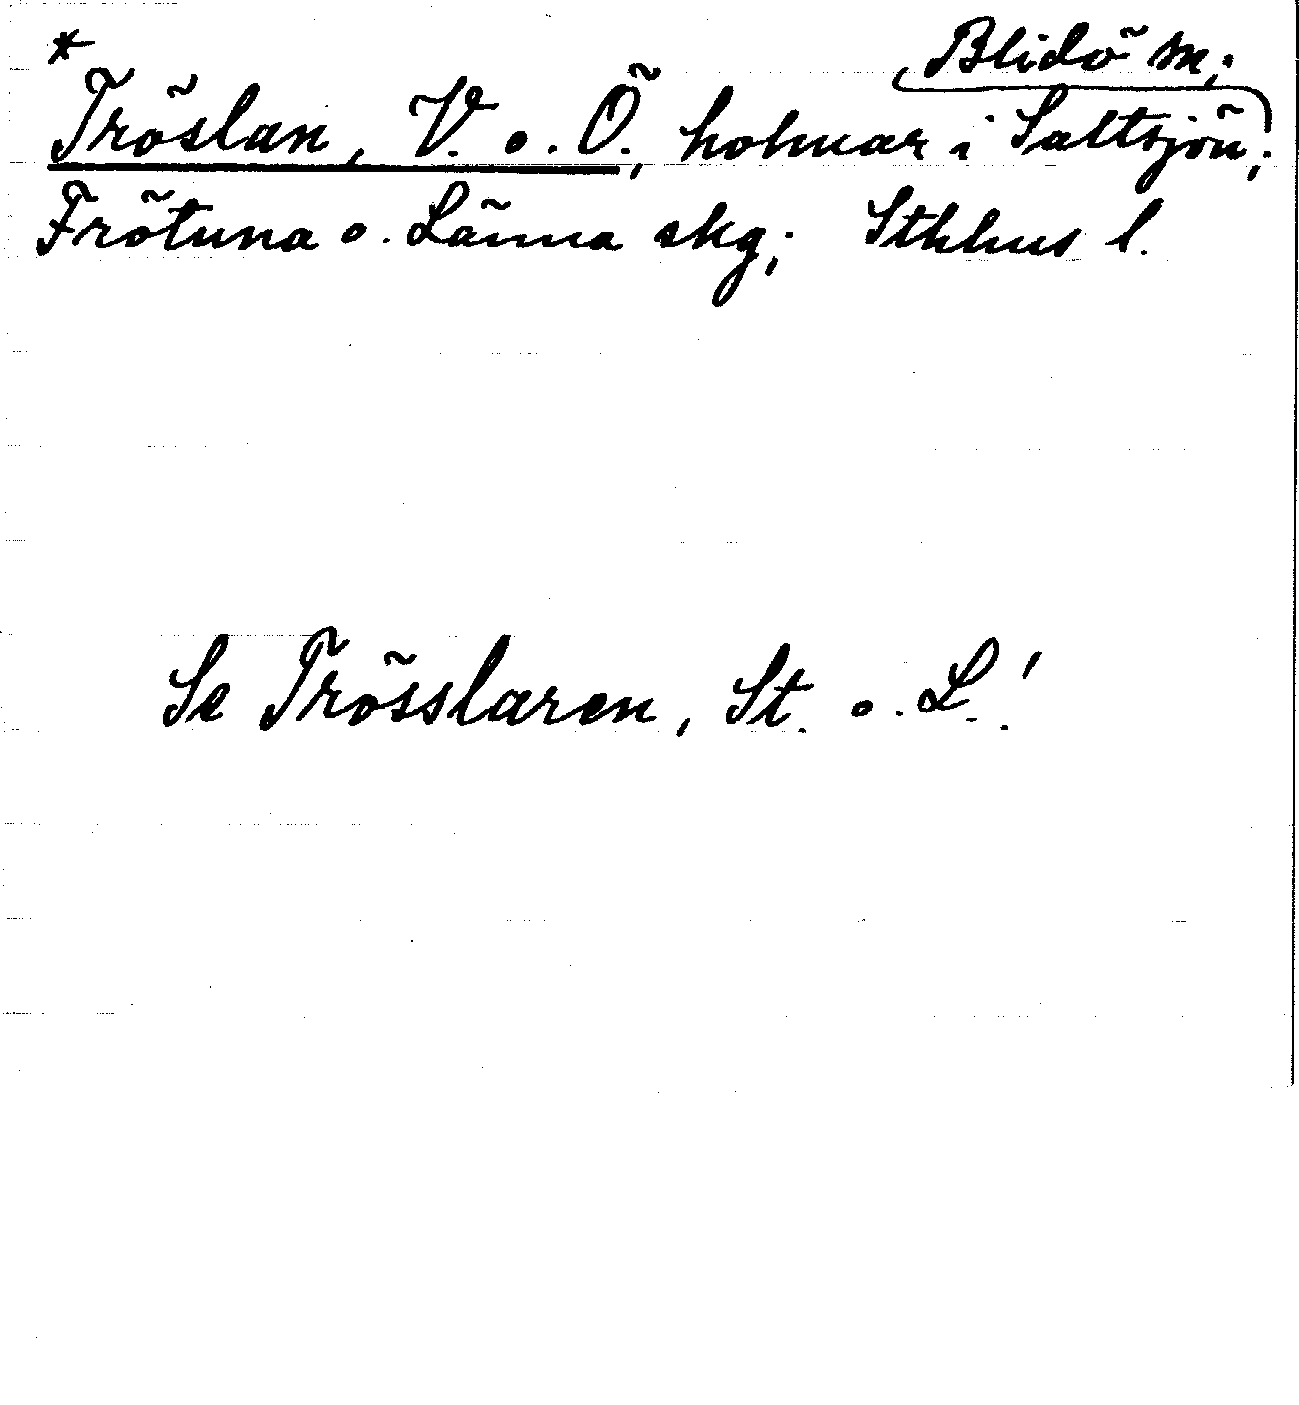 *
Blidö sn;
Tröslan, V. o. Ö., holmar i Saltsjön;
Frötuna o. Länna skg; Sthlms l.
Se Trösslaren, St. o. L.!